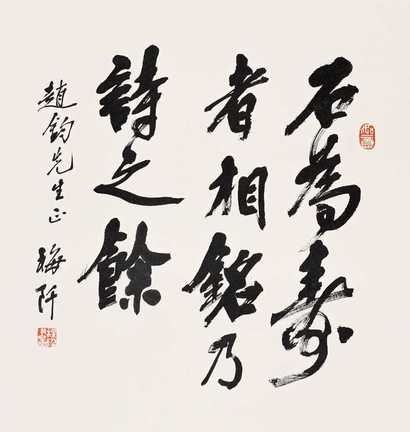 石為壽
者相銘乃
詩之餘
趙鈞先生正 梅阡